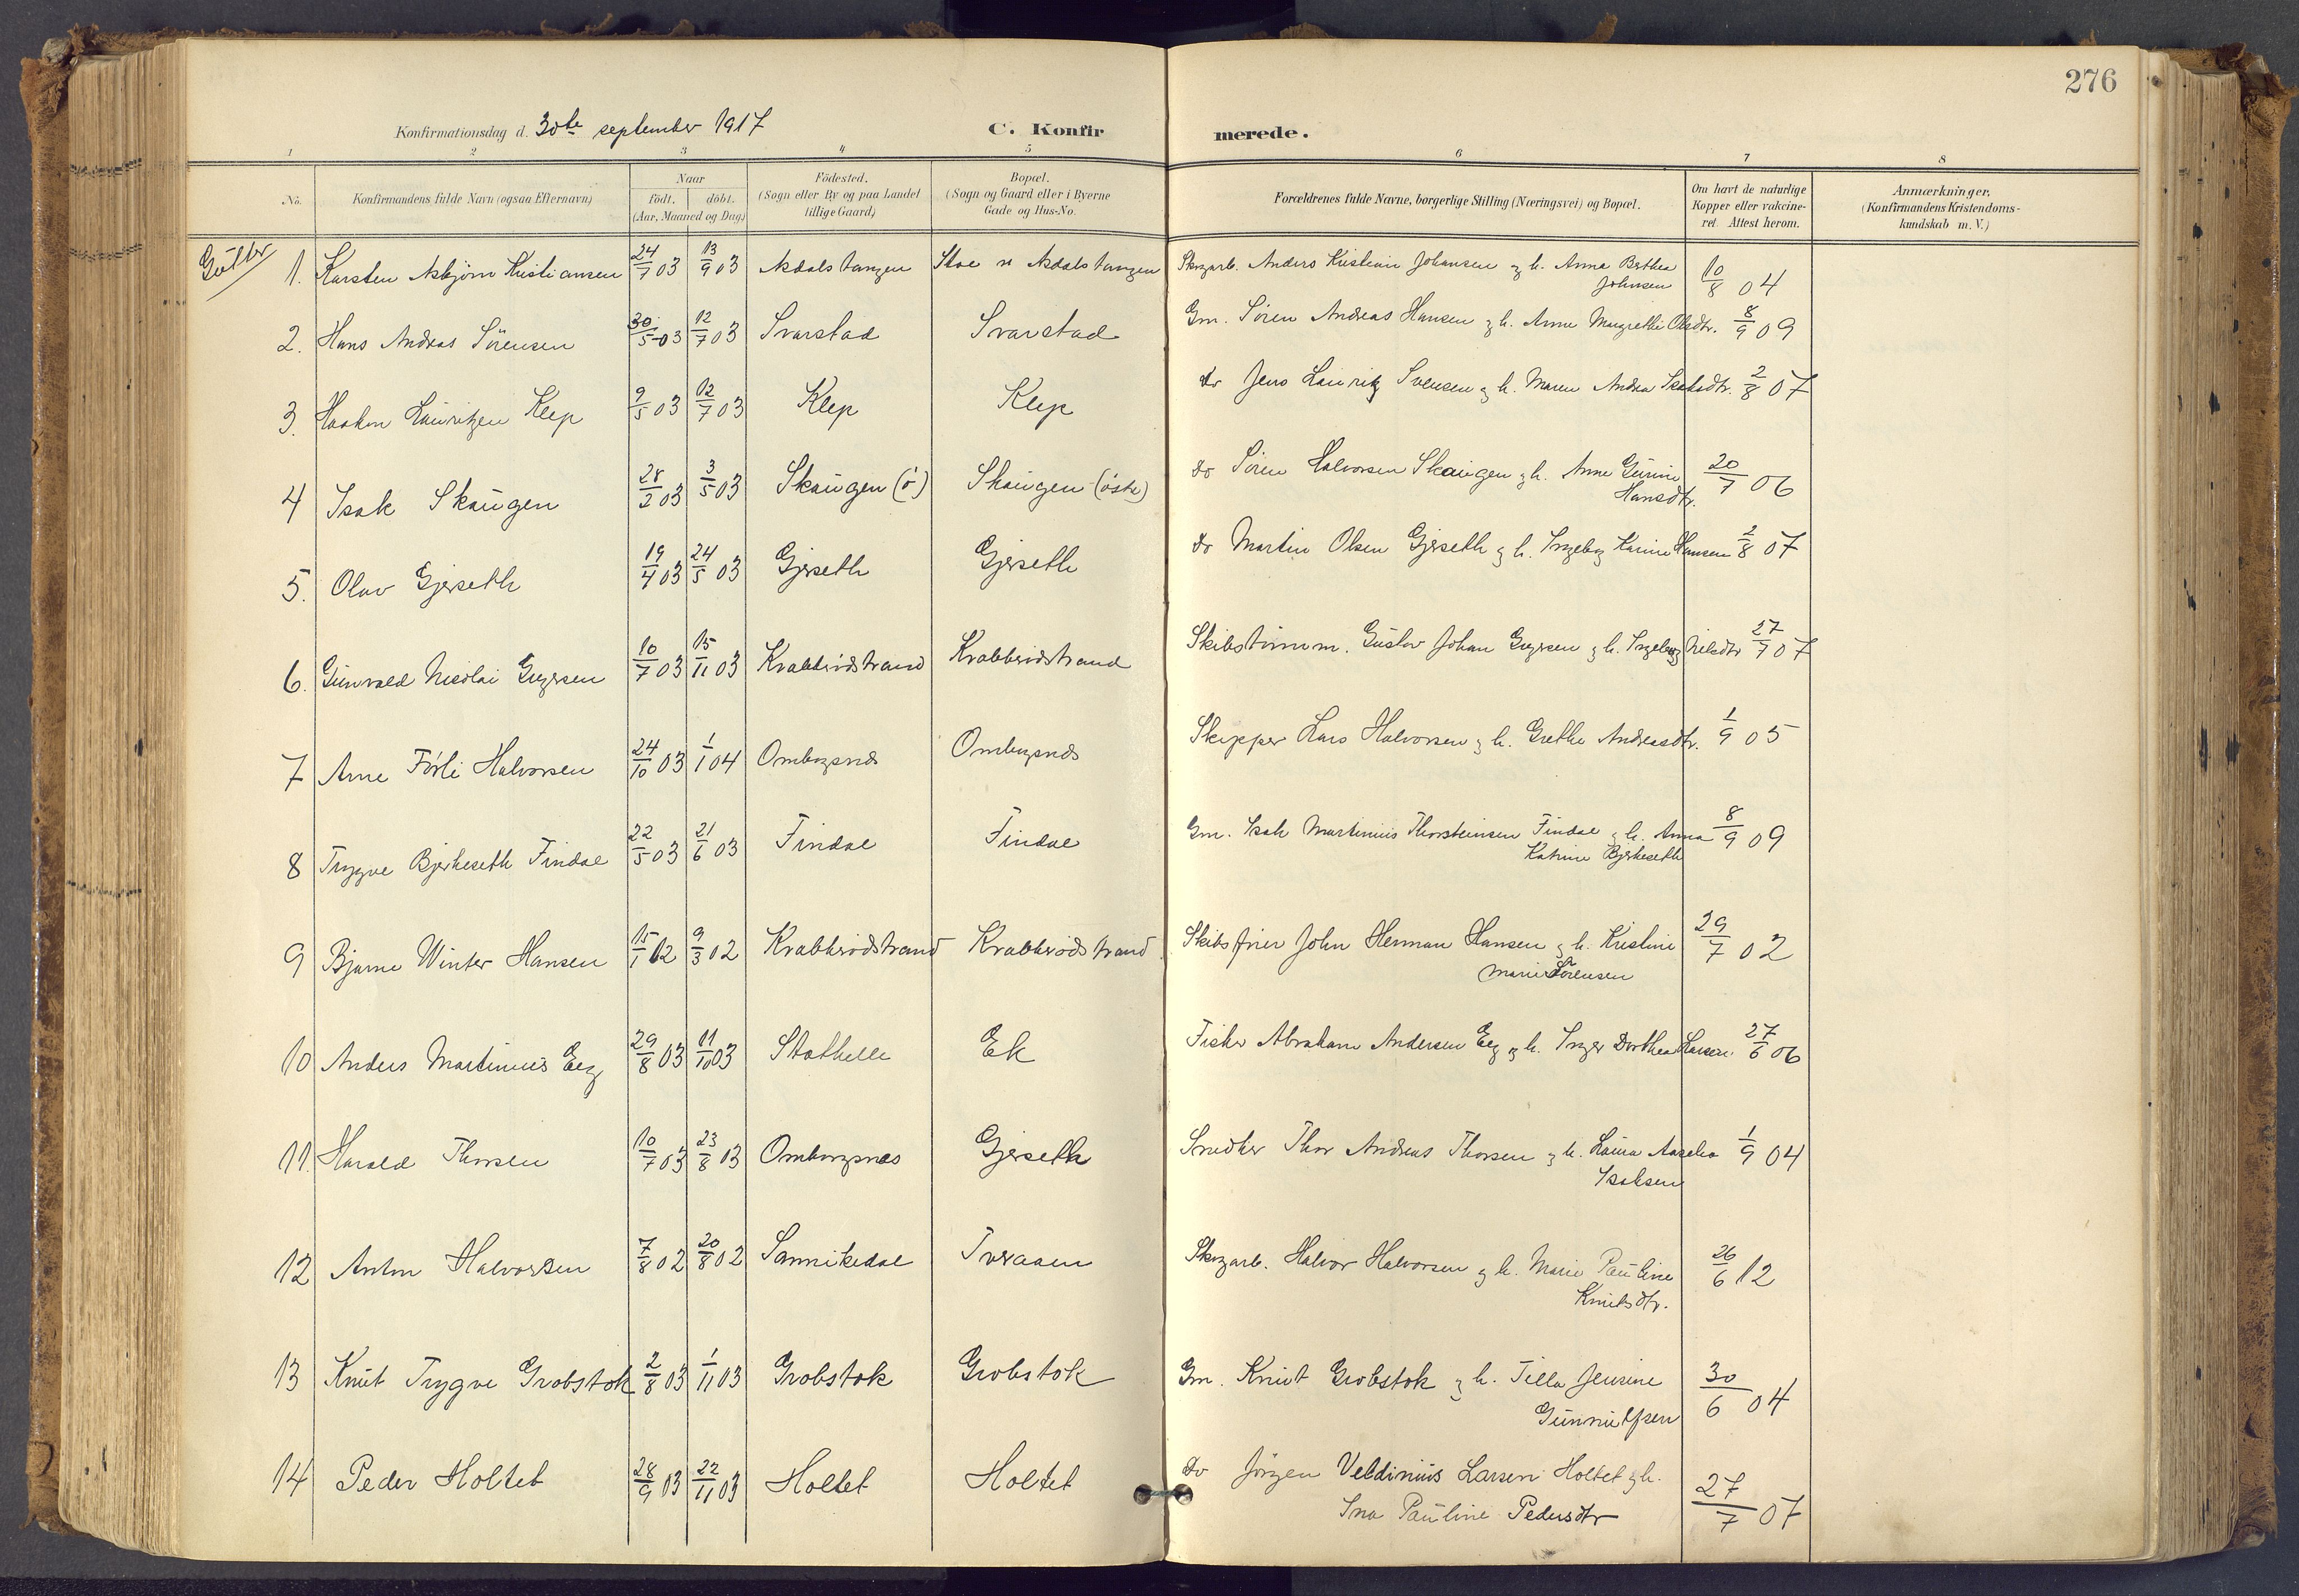 276
Konfirmationsdag d. 30te september 1917 C. Konfir merede.
1 2 3 4 5 6 7 8
No. Konfirmandens fulde Navn (ogsaa Efternavn) Naar födt. döbt. (Aar, Maaned og Dag) Födested. (Sogn eller By og paa Landet tillige Gaard) Bopæl. (Sogn og Gaard eller i Byerne Gade og Hus-No. Forældrenes fulde Navne, borgerlige Stilling (Næringsvei) og Bopæl. Om havt de naturlige Kopper eller vakcineret. Attest herom. Anmærkninger. (Konfirmandens Kristendomskundskab m. V.)
Gutter
1. Karsten Asbjörn Kristiansen 24/7 03 13/9 03 Asdalstangen Stoe Asdalstangen Skogarb. Anders Kristian Johansen og h. Anna Berthea Johnsen 10/8 04
2. Hans Andreas Sörensen 30/5 03 12/7 03 Svarstad Svarstad Gm. Sören Andreas Hansen og h. Anne Margrethe Olsdtr. 8/9 09
3. Haakon Lauritzen Klep 9/5 03 12/7 03 Klep Klep do Jens Lauritz Svensen og h. Maren Andrea Isaksdtr. 2/8 07
4 Isak Skaugen 28/2 03 3/5 03 Skaugen (ö) Skaugen (östre) do Sören Halvorsen Skaugen og h. Anne Gurine Hansdtr. 20/7 06
5. Olav Gjerseth 19/4 03 24/5 03 Gjerseth Gjerseth do Martin Olsen Gjerseth og h. Ingeborg Karine Hansen 2/8 07
6. Gunvald Nicolai Gregersen 10/7 03 15/11 03 Krabberödstrand Krabberödstrand Skibstömm. Gustav Johan Gregersen og h. Ingeborg Nilsdtr 27/7 07
7 Arne Förli Halvorsen 24/10 03 1/1 04 Ombogsnes Ombogsnes Skipper Lars Halvorsen og h. Grethe Andreasdtr. 1/9 05
8 Trygve Bjerkeseth Findal 22/5 03 21/6 03 Findal Findal Gm. Isak Martinius Thorsteinsen Findal og h. Anna Katrine Bjerkeseth 8/9 09
9 Bjarne Winter Hansen 15/1 02 9/3 02 Krabberödstrand Krabberödstrand Skibsförer John Herman Hansen og h. Kristine Marie Sörensen 29/7 02
10 Anders Martinius Eeg 29/8 03 11/10 03 Stathelle Ek Fisker Abraham Andersen Eeg og h. Inger Dorthea Larsen. 27/6 06
11. Harald Thorsen 10/7 03 23/8 03 Ombogsnes Gjerseth Snedker Thor Andreas Thorsen og h. Laura Aaselia Isaksen 1/9 04
12 Anton Halvorsen 7/8 02 20/8 02 Sannikedal Tveraaen Skogarb. Halvor Halvorsen og h. Marie Pauline Knutsdtr. 26/6 12
13 Knut Trygve Grobstok 2/8 03 1/11 03 Grobstok Grobstok Gm. Knut Grobstok og h. Tilla Jensine Gunnulfsen 30/6 04
14 Peder Holtet 28/9 03 22/11 03 Holtet Holtet do Jörgen Veldinius Larsen Holtet og h. Ina Pauline Pedersdtr 27/7 07